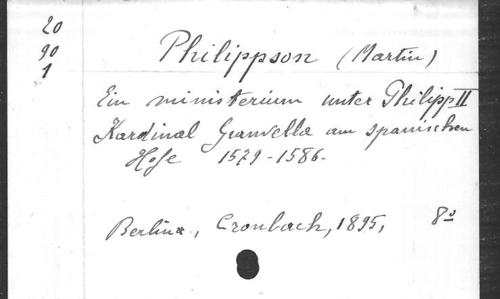 20
90
1
Philippson (Martin)
Ein ministerium unter Philipp II
Kardinal Granvella am spanischen
Hofe 1579-1586-
Berlin, Cronbach, 1895, 8º